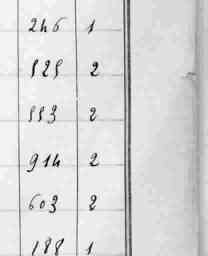 246 1
525 2
553 2
914 2
603 2
188 1